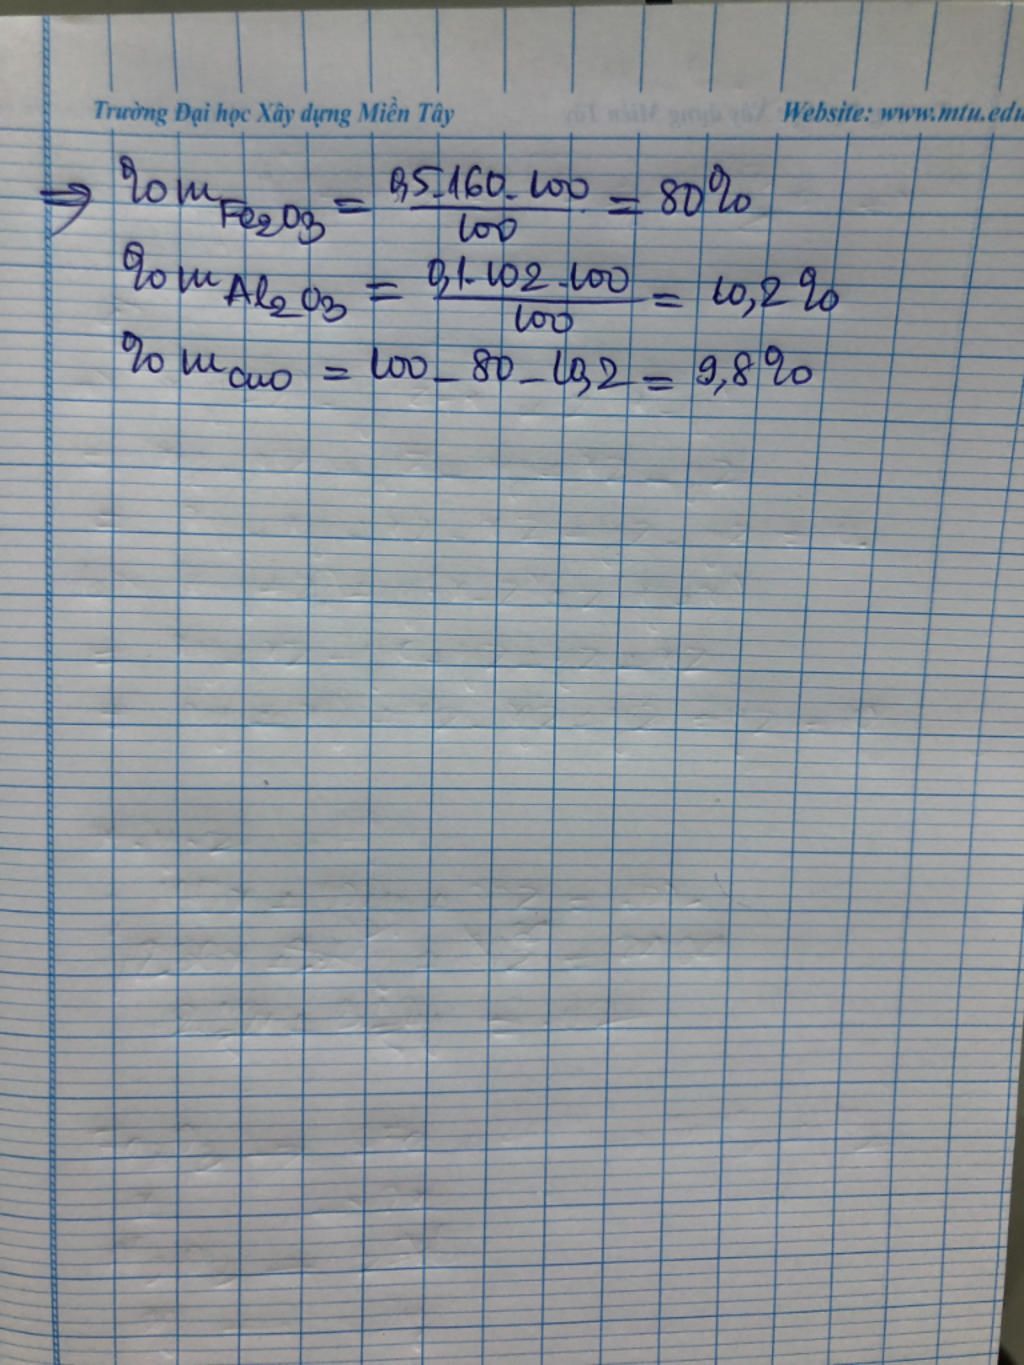 Trường Đại học Xây dựng Miền Tây Website: www.mtu.edu
⇒ %m Fe2O3 = 0,5.160.100 / 100 = 80%
%m Al2O3 = 0,1.102.100 / 100 = 10,2%
%m CuO = 100 - 80 - 10,2 = 9,8%